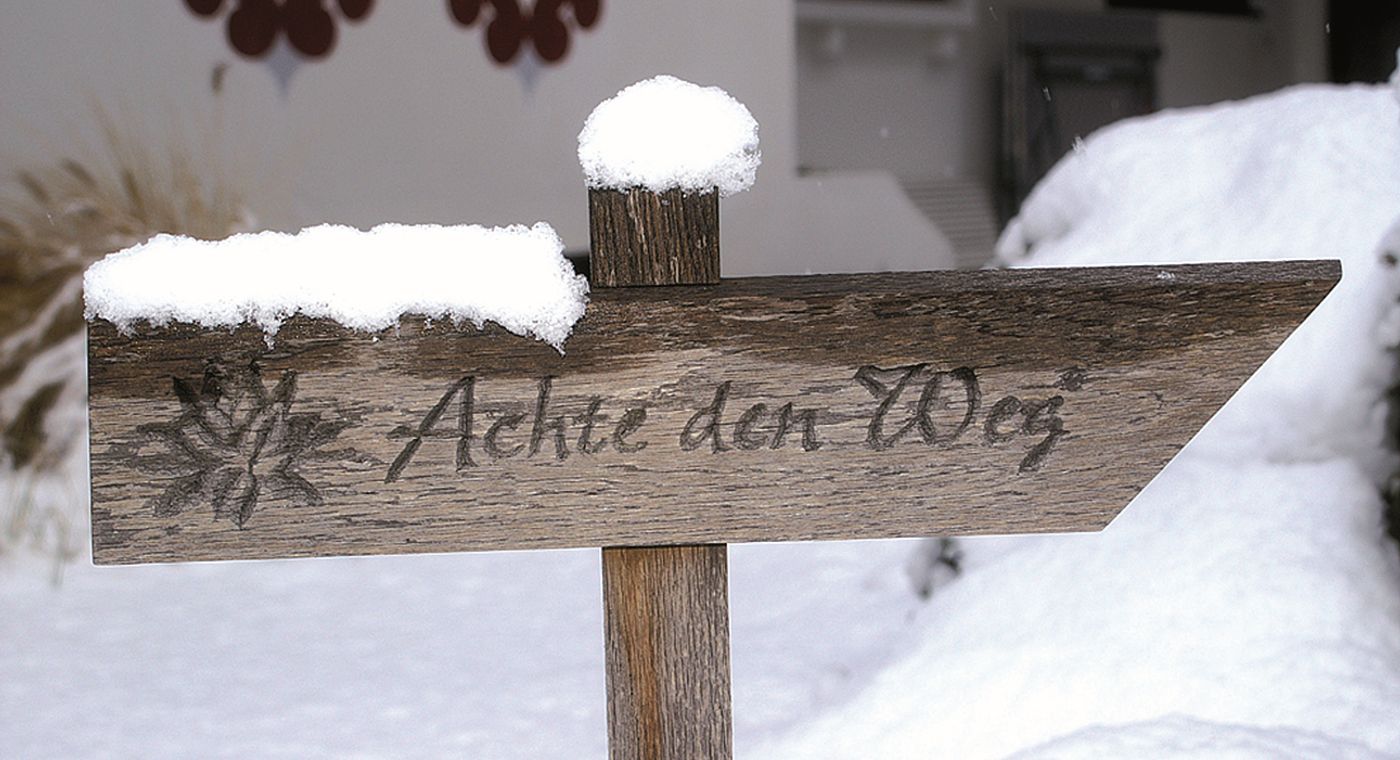 Achte den Weg